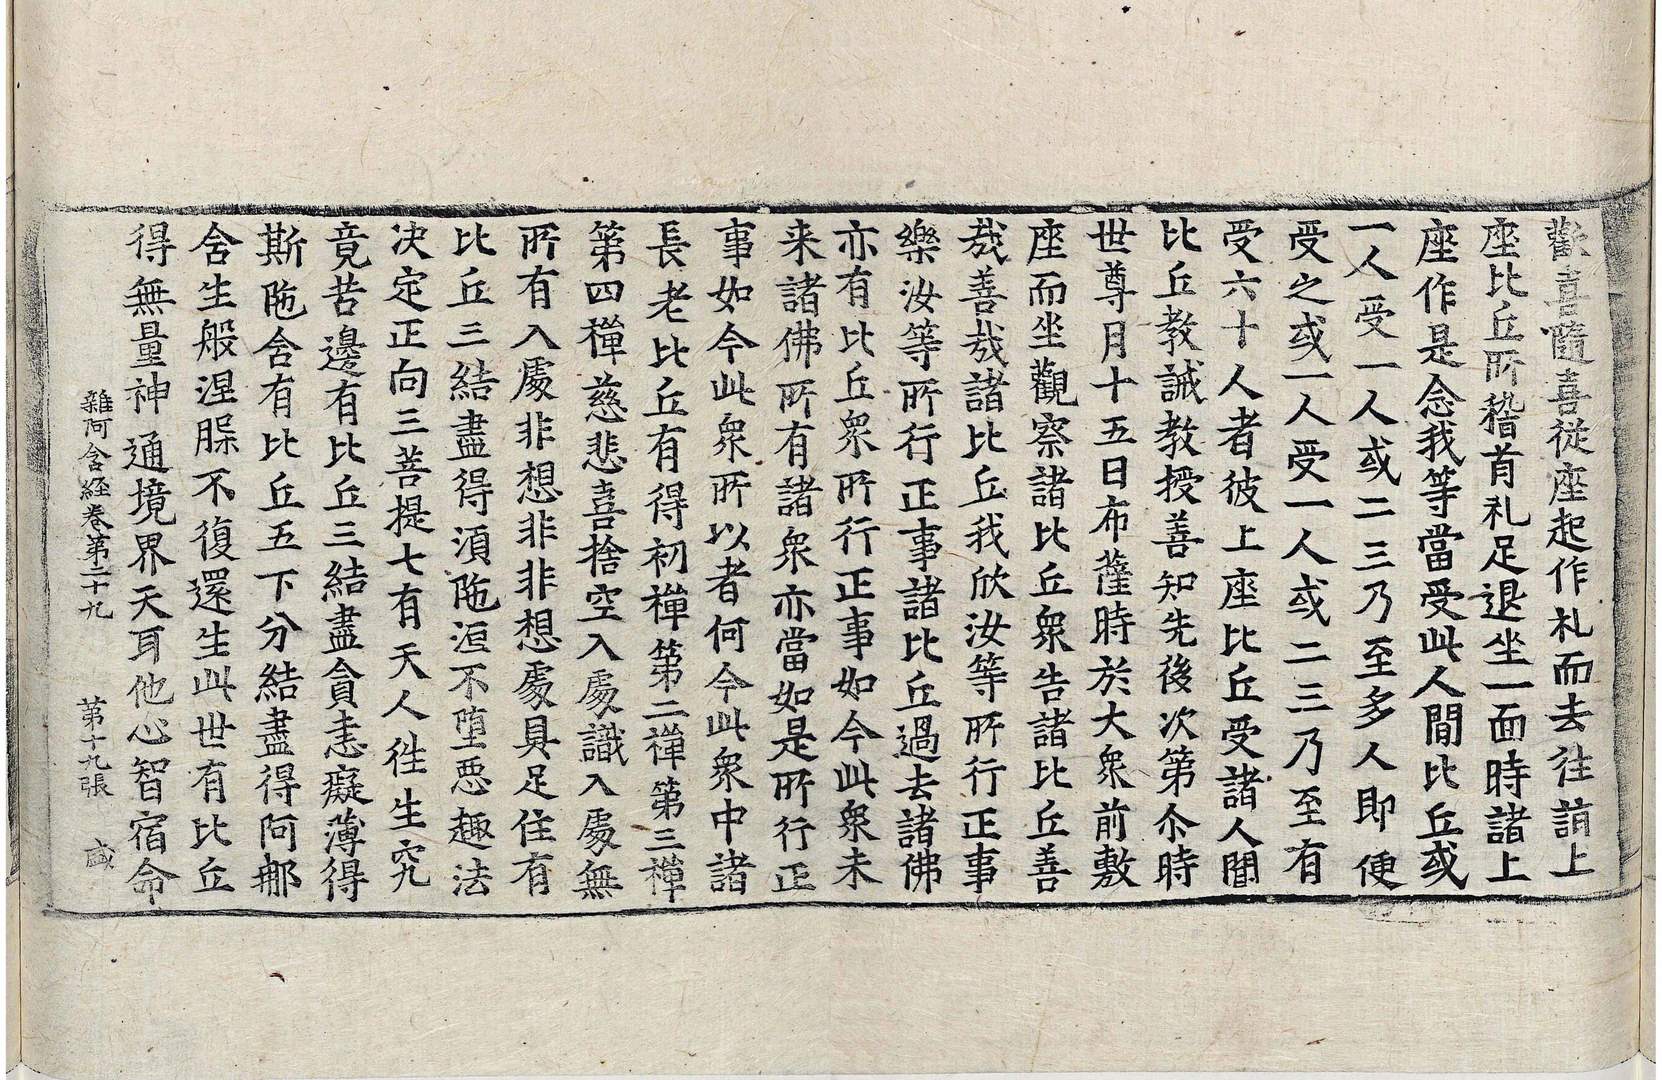 歡喜隨喜從座起作礼而去往詣上
座比丘所稽首礼足退坐一面時諸上
座作是念我等當受此人閒比丘或
一人受一人或二三乃至多人即便
受之或一人受一人或二三乃至有
受六十人者彼上座比丘受諸人閒
比丘教誡教授善知先後次第尒時
世尊月十五日布薩時於大衆前敷
座而坐觀察諸比丘衆告諸比丘善
㢤善㢤諸比丘我欣汝等所行正事
樂汝等所行正事諸比丘過去諸佛
亦有比丘衆所行正事如今此衆未
来諸佛所有諸衆亦當如是所行正
事如今此衆所以者何今此衆中諸
長老比丘有得初禪第二禪第三禪
第四禪慈悲喜捨空入處識入處無
所有入處非想非非想處具足住有
比丘三結盡得湏陁洹不墮惡趣法
决定正向三菩提七有天人徃生究
竟苦邊有比丘三結盡貪恚癡薄得
斯陁含有比丘五下分結盡得阿那
含生般涅槃不復還生此世有比丘
得無量神通境界天耳他心智宿命
雜阿含経卷第二十九 第十九張 盛